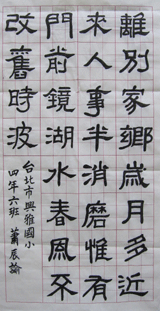 離別家鄉歲月多近
來人事半消磨惟有
門前鏡湖水春風不
改舊時波
台北市興雅國小
四年六班 蕭辰諭